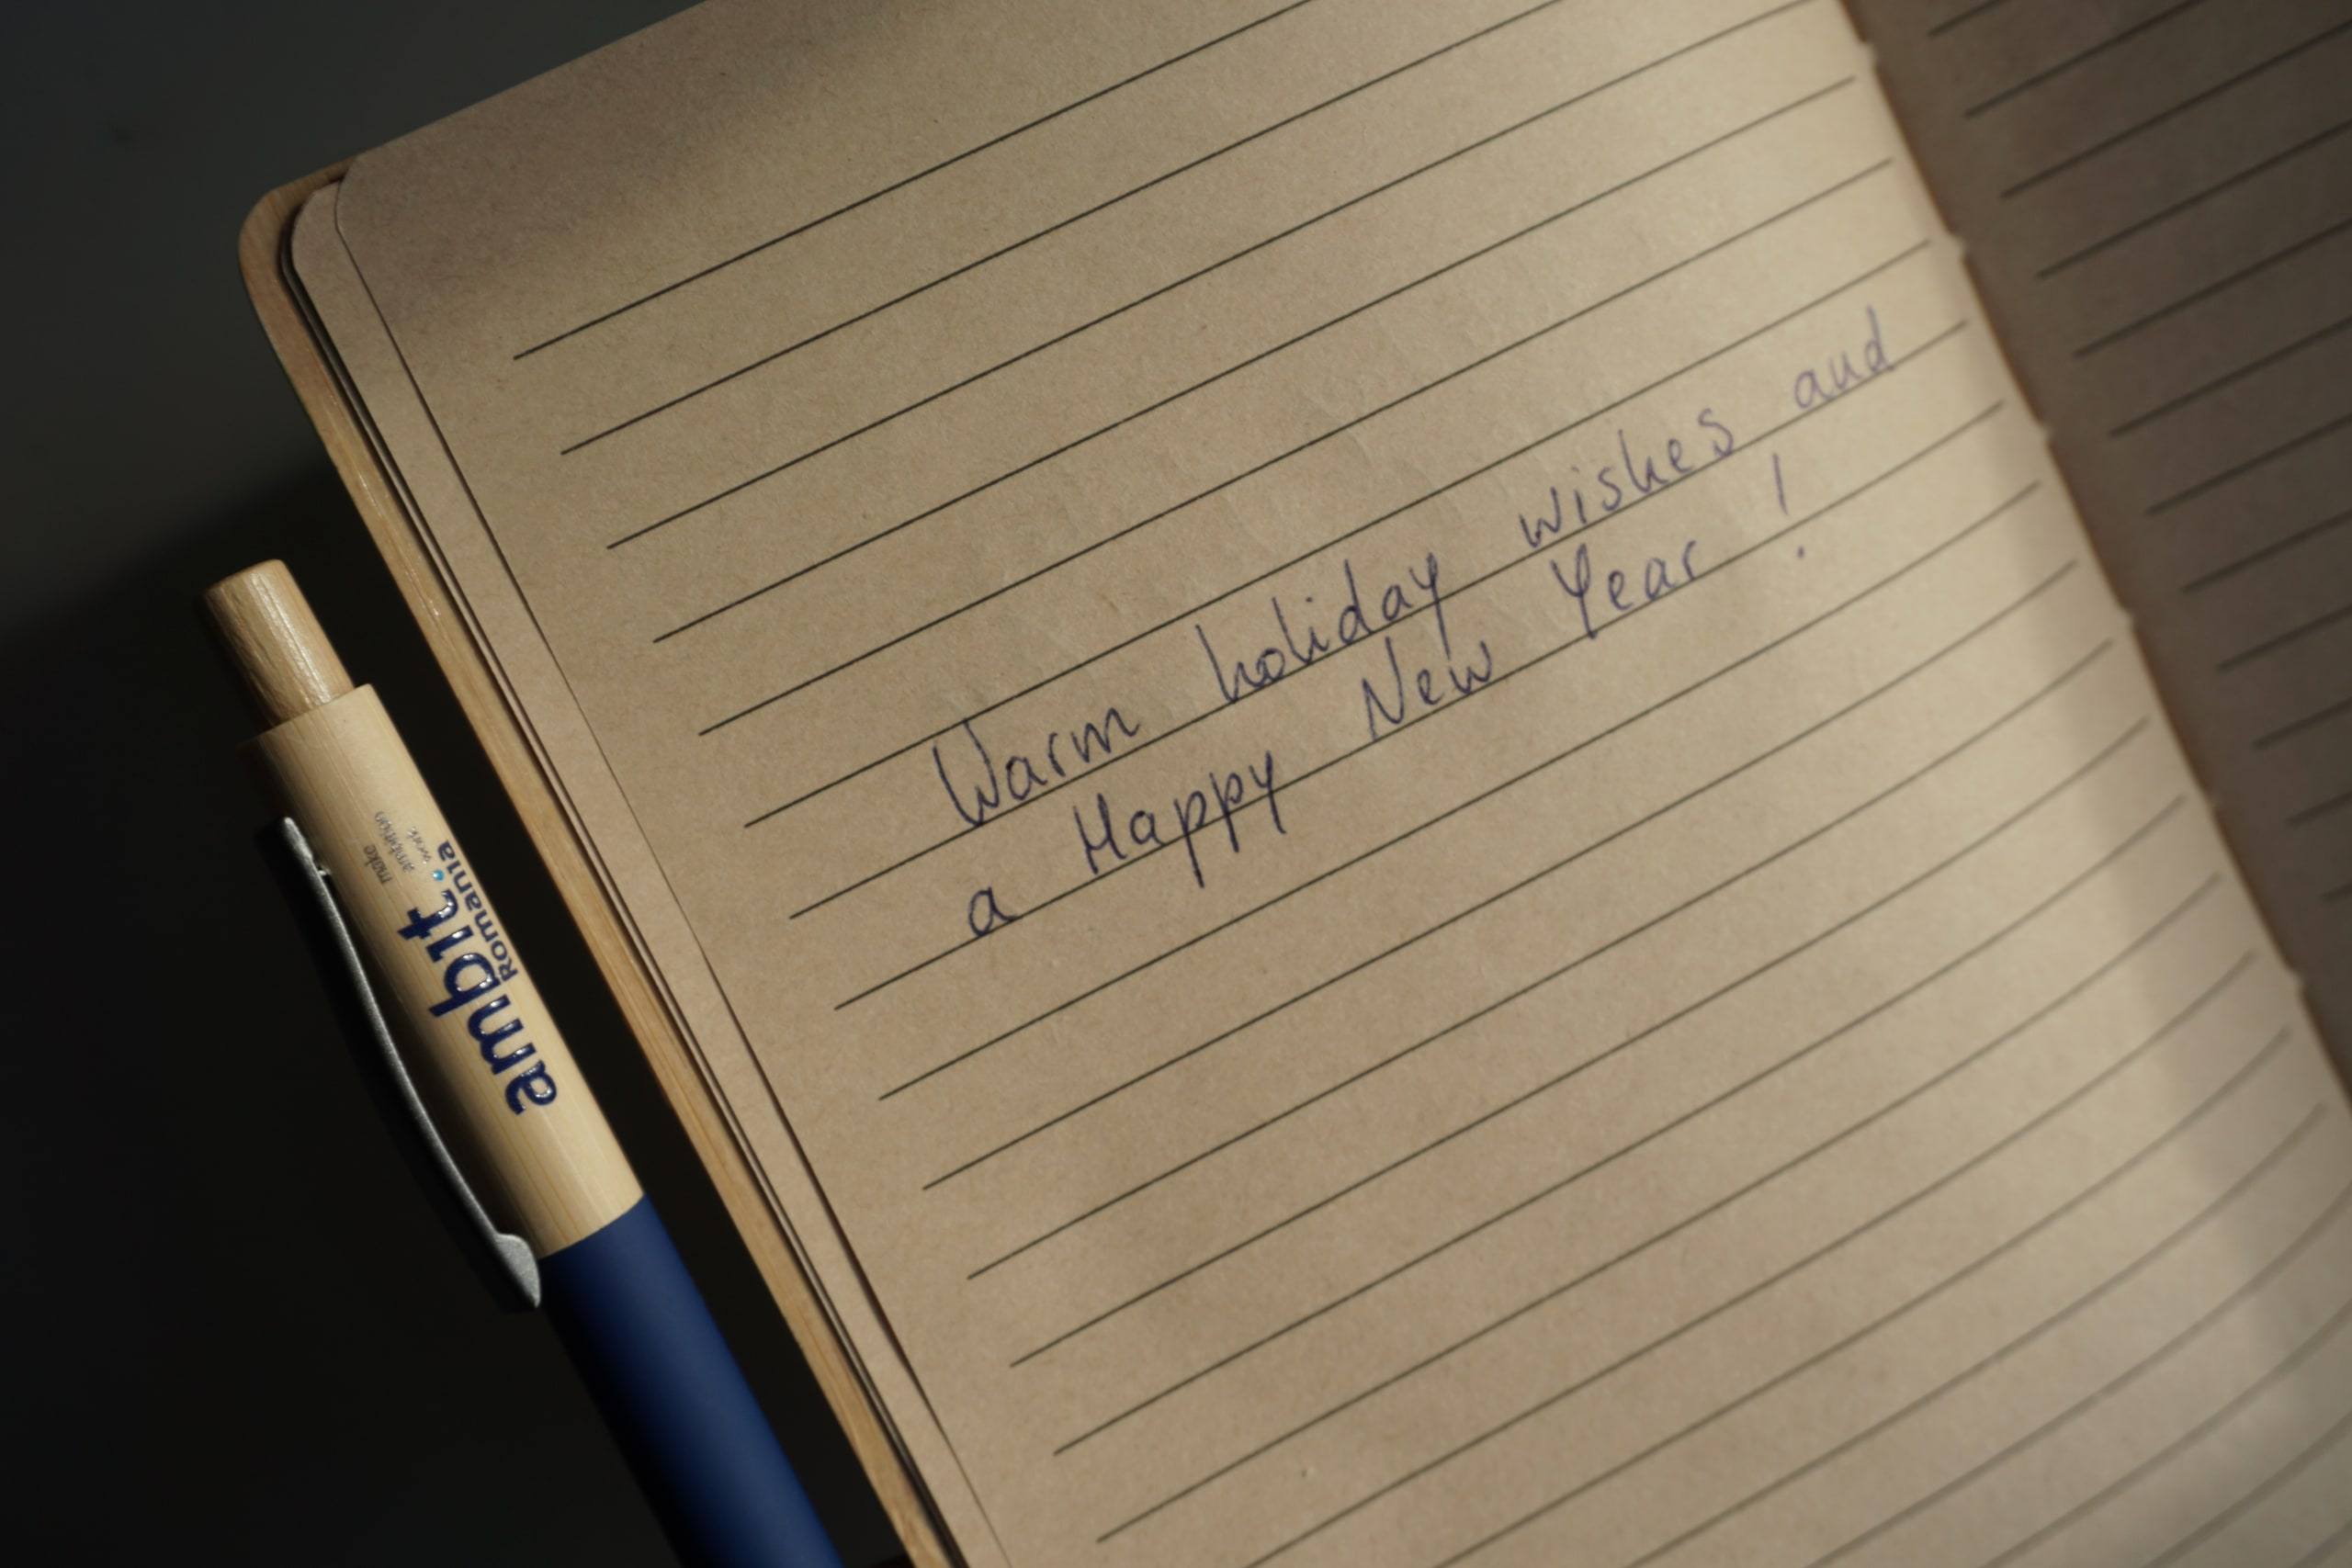 Warm holiday wishes and
a Happy New Year !
ambit
Romania
make
ambition
work